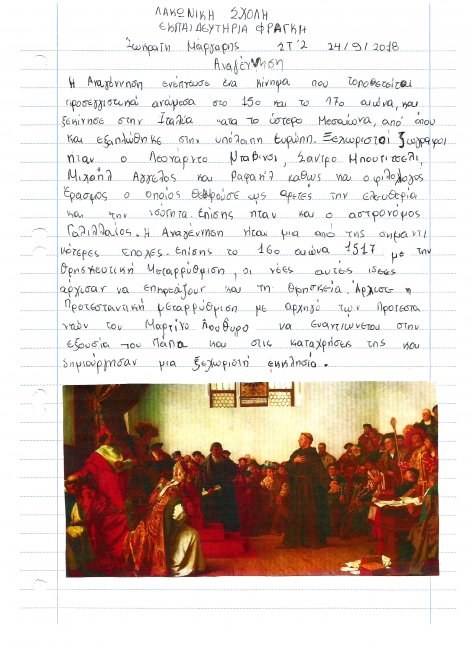 ΛΑΚΩΝΙΚΗ ΣΧΟΛΗ
ΕΚΠΑΙΔΕΥΤΗΡΙΑ ΦΡΑΓΚΗ
Σωκράτη Μάργαρης ΣΤ'2 24/9/2018
Αναγέννηση
Η Αναγέννηση ενέπνευσε ένα κίνημα που τοποθετείται
προσεγγιστικά ανάμεσα στο 15ο και το 17ο αιώνα, και
ξεκίνησε στην Ιταλία κατα το ύστερο Μεσαίωνα, από όπου
και εξαπλώθηκε στην υπόλοιπη Ευρώπη. Ξεχωριστοί ζωγράφοι
ήταν ο Λεονάρντο Νταβίνσι, Σάντρο Μποντισέλι,
Μιχαήλ Άγγελος και Ραφαήλ καθώς και ο φιλόλογος
Έρασμος ο οποίος θεωρούσε ως αρετές την ελευθερία
και την ισότητα. Επίσης ήταν και ο αστρονόμος
Γαλιλλαίος. Η Αναγέννηση ήταν μια από τις σημαντι
κότερες εποχές. Επίσης το 16ο αιώνα 1517 με την
Θρησκευτική Μεταρρύθμιση, οι νέες αυτές ιδέες
άρχισαν να επηρεάζουν και τη θρησκεία. Άρχισε η
Προτεσταντική μεταρρύθμιση με αρχηγό των Προτεστα
ντών τον Μαρτίνο Λούθυρο να εναντιώνεται στην
εξουσία του Πάπα και στις καταχρήσεις της και
δημιούργησαν μια ξεχωριστή εκκλησία.